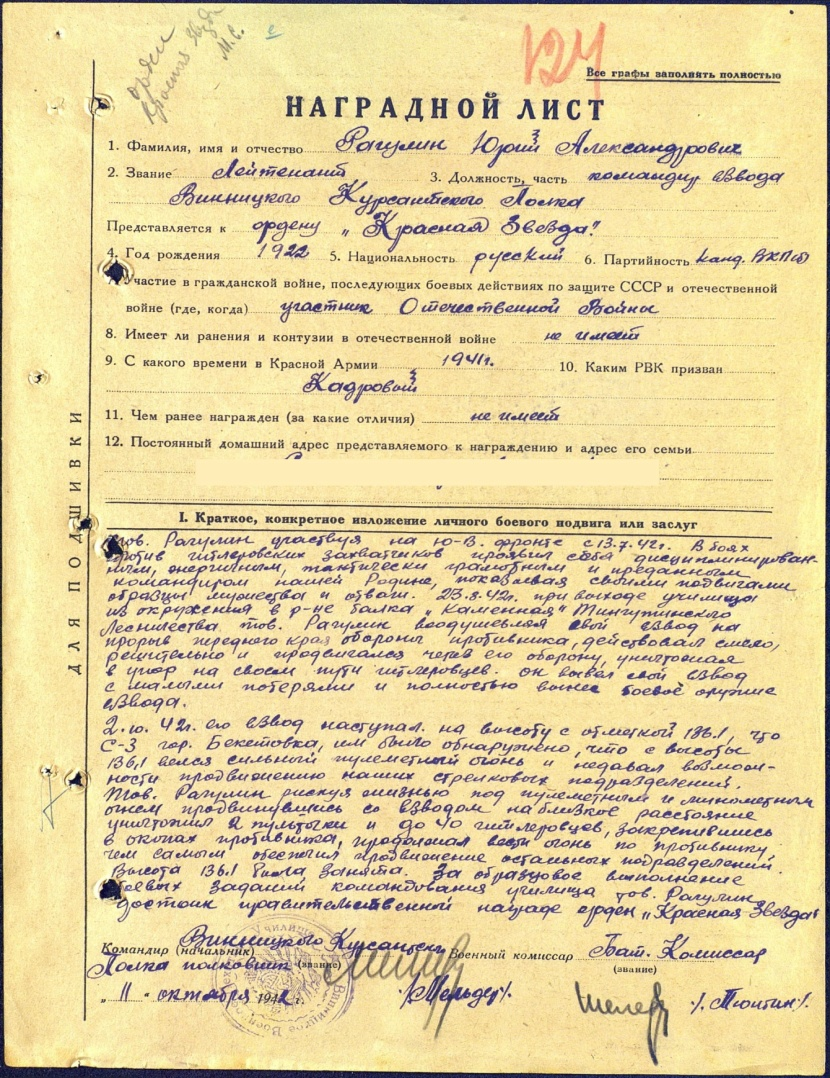 орден
Красная Звезда
М.С.
124
Все графы заполнять полностью
НАГРАДНОЙ ЛИСТ
1. Фамилия, имя и отчество Рагулин Юрий Александрович
2. Звание Лейтенант 3. Должность, часть командир взвода
Винницкого Курсантского Полка
Представляется к ордену „Красная Звезда"
4. Год рождения 1922 5. Национальность русский 6. Партийность канд. ВКП(б)
Участие в гражданской войне, последующих боевых действиях по защите СССР и отечественной
войне (где, когда) участник Отечественной Войны
8. Имеет ли ранения и контузии в отечественной войне не имеет
9. С какого времени в Красной Армии 1941г. 10. Каким РВК призван
Кадровый
11. Чем ранее награжден (за какие отличия) не имеет
12. Постоянный домашний адрес представляемого к награждению и адрес его семьи
ДЛЯ ПОДШИВКИ
I. Краткое, конкретное изложение личного боевого подвига или заслуг
тов. Рагулин участвуя на Ю-В. фронте с 13.7.42г. В боях
против гитлеровских захватчиков проявил себя дисциплинирован-
ным, энергичным, тактически грамотным и преданным
командиром нашей Родине, показывая своими подвигами
образцы мужества и отваги. 23.8.42г. при выходе училища
из окружения в р-не балка „Каменная" Тингутинского
Лесничества тов. Рагулин воодушевляя свой взвод на
прорыв переднего края обороны противника, действовал смело,
решительно и продвигался через его оборону, уничтожая
в упор на своем пути гитлеровцев. он вывел свой взвод
с малыми потерями и полностью вынес боевое оружие
взвода.
2.10.42г. его взвод наступал на высоту с отметкой 136.1, что
С-З гор. Бекетовка, им было обнаружено, что с высоты
136,1 велся сильный пулеметный огонь и недавал возмож-
ности продвижению наших стрелковых подразделений.
Тов. Рагулин рискуя жизнью под пулеметным и минометным
огнем продвинувшись со взводом на близкое расстояние
уничтожил 2 пульточки и до 40 гитлеровцев, закрепившись
в окопах противника, продолжал вести огонь по противнику
чем самым обеспечил продвижение остальных подразделений.
Высота 136.1 была занята. За образцовое выполнение
боевых заданий командования училища тов. Рагулин
достоин правительственной награде орден „Красная Звезда"
Командир (начальник) Винницкого Курсантск. Военный комиссар Бат. Комиссар
Полка полковник (звание) (звание)
„11" октября 1942 г. /Мельдер/. /.Тютин/.